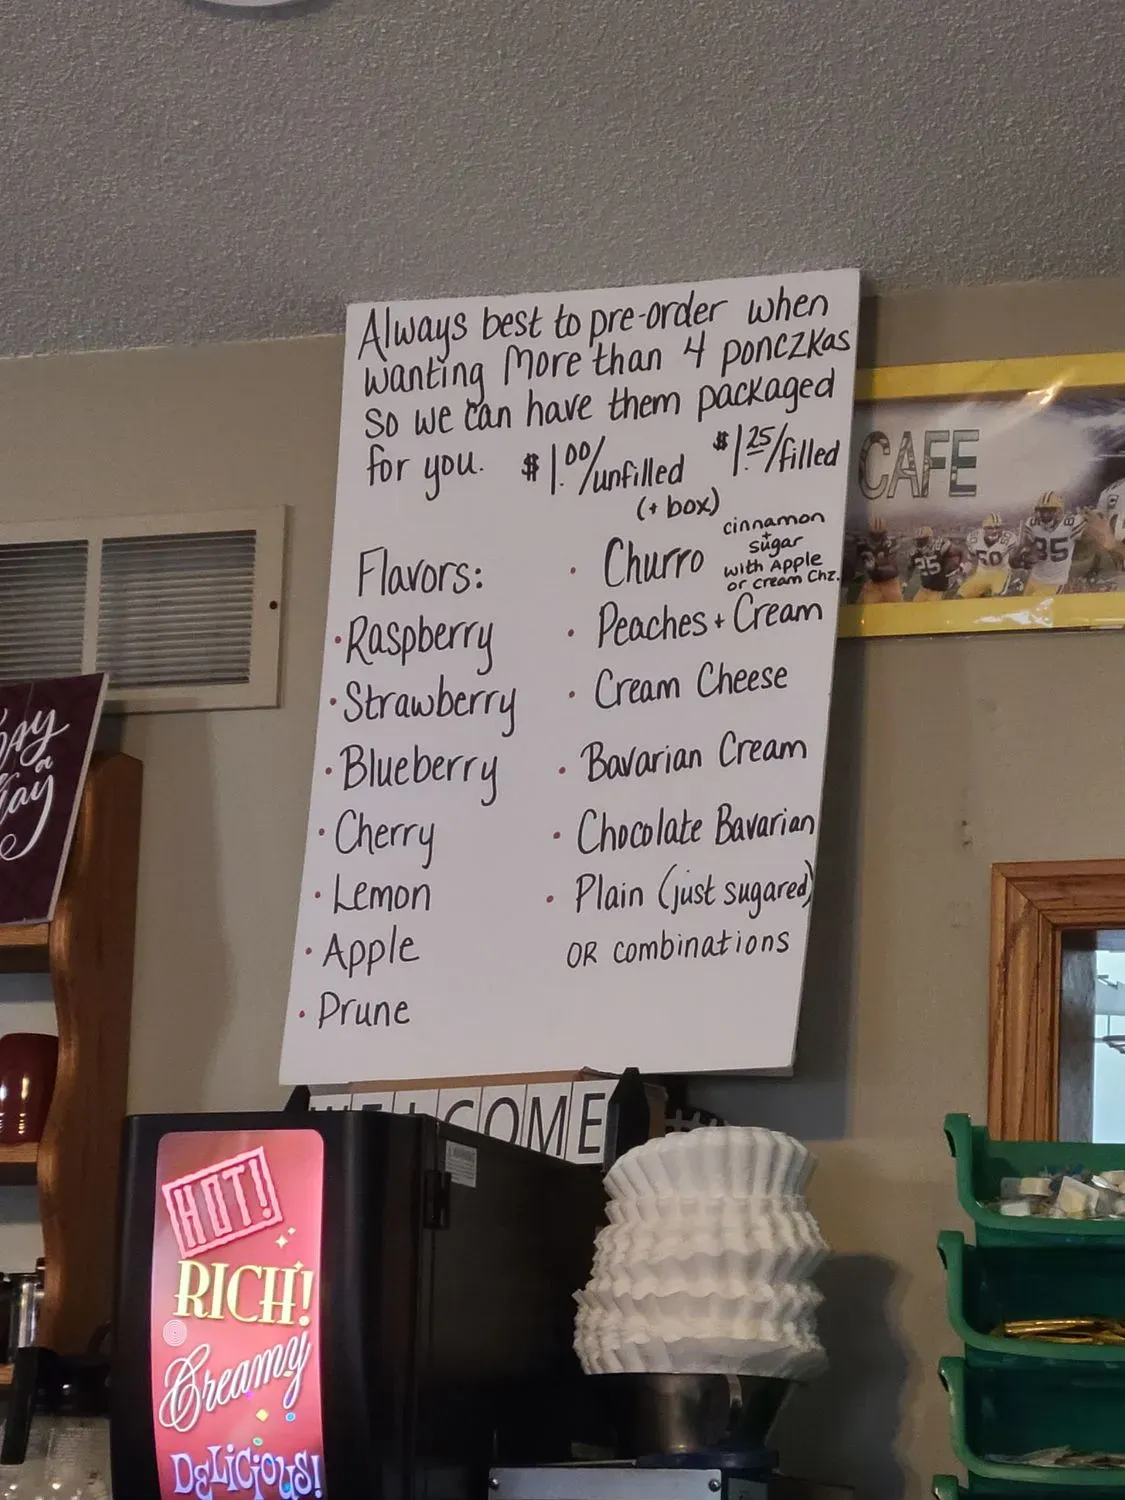 Always best to pre-order when
wanting more than 4 ponczkas
so we can have them packaged
for you. $1.00/unfilled $1.25/filled
(+ box)
Flavors:
• Raspberry
• Strawberry
• Blueberry
• Cherry
• Lemon
• Apple
• Prune
• Churro
cinnamon
+
sugar
with Apple
or cream Chz.
• Peaches + Cream
• Cream Cheese
• Bavarian Cream
• Chocolate Bavarian
• Plain (just sugared)
OR combinations
CAFE
25
50
85
a
WELCOME
HOT!
RICH!
Creamy
DELiCiOUS!